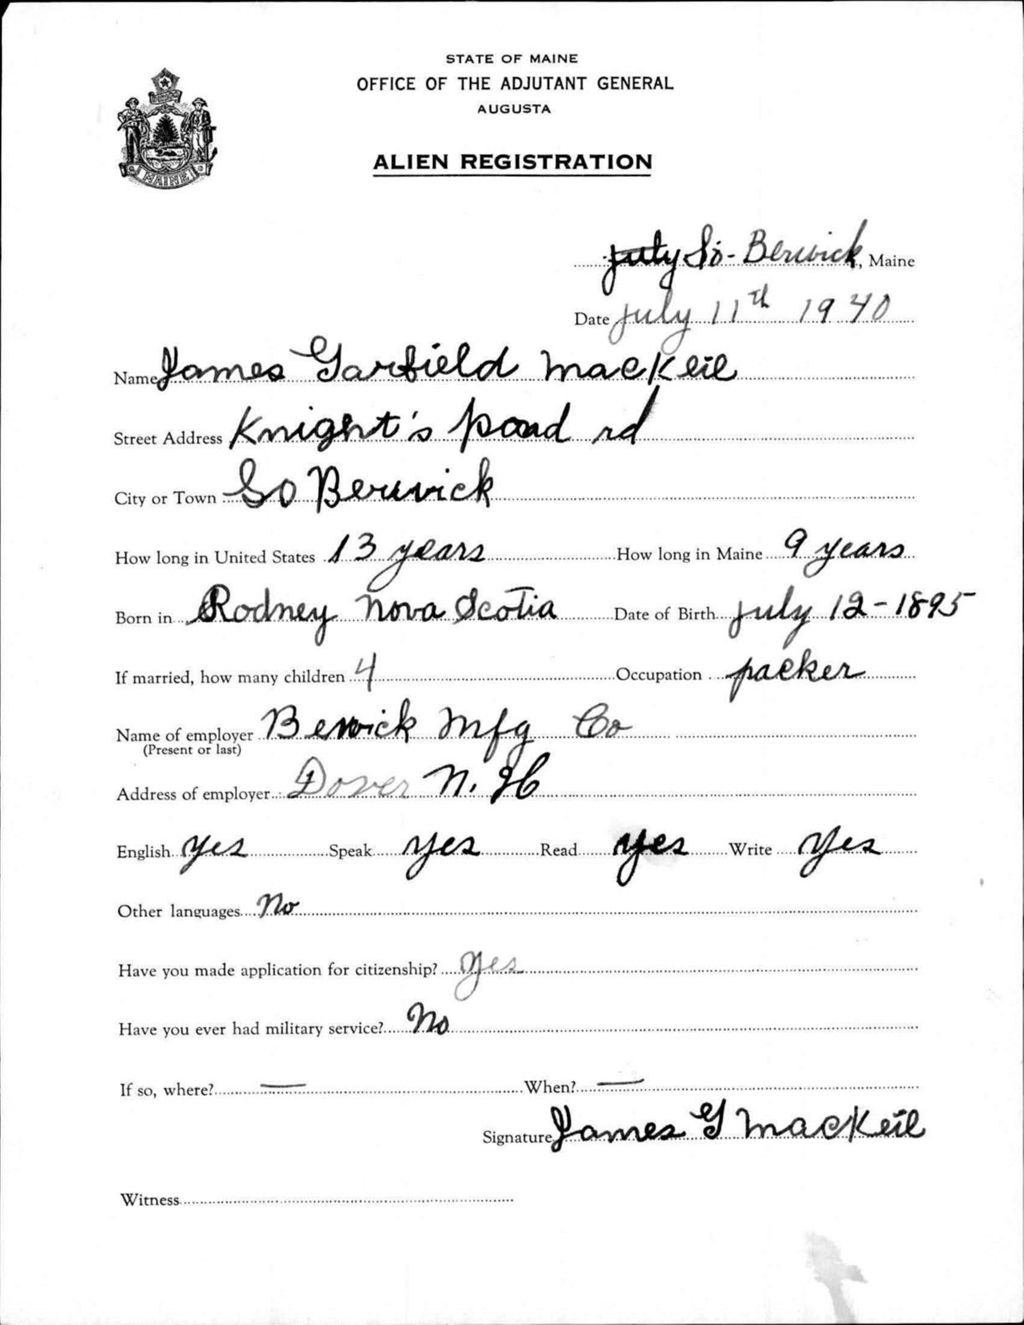 STATE OF MAINE
OFFICE OF THE ADJUTANT GENERAL
AUGUSTA
ALIEN REGISTRATION
MAINE
July So- Berwick, Maine
Date July 11th 1940
Name James Garfield MacKeil
Street Address Knight's pond rd
City or Town So Berwick
How long in United States 13 years How long in Maine 9 years
Born in Rodney Nova Scotia Date of Birth July 12-1895
If married, how many children 4 Occupation packer
Name of employer Berwick Mfg Co
(Present or last)
Address of employer Dover N. H
English yes Speak yes Read yes Write yes
Other languages No
Have you made application for citizenship? Yes
Have you ever had military service? No
If so, where? — When? —
Signature James G MacKeil
Witness